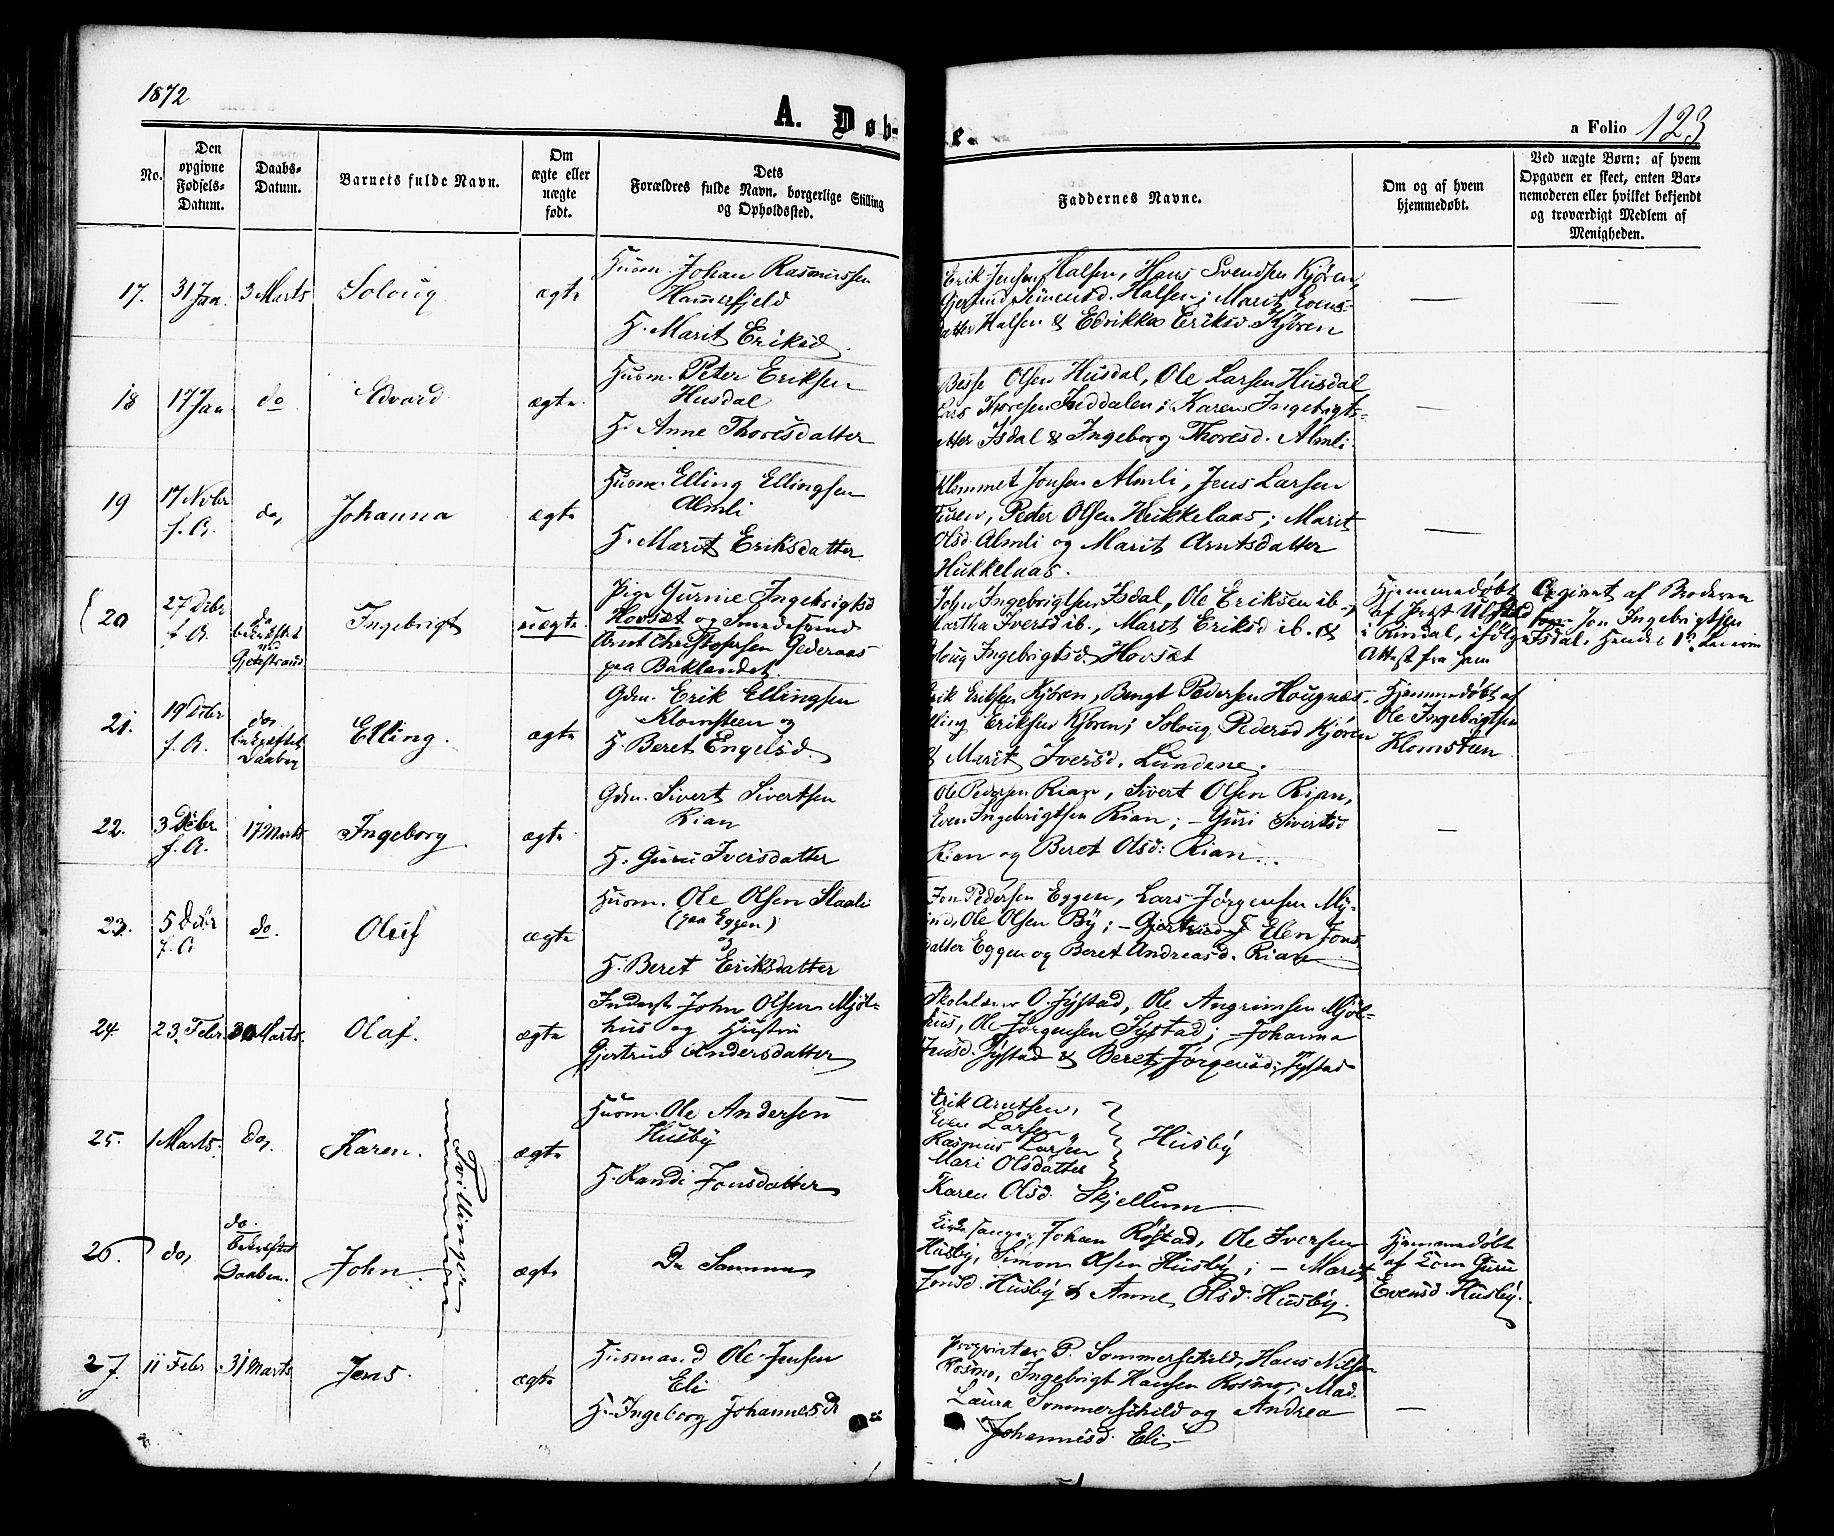 1872
A. Døb-
e.
a Folio 123
No.
Den
opgivne
Fødsels-
Datum.
Daabs-
Datum.
Barnets fulde Navn.
Om
ægte eller
uægte
født.
Dets
Forældres fulde Navn, borgerlige Stilling
og Opholdssted.
Faddernes Navne.
Om og af hvem
hjemmedøbt.
Ved uægte Børn: af hvem
Opgaven er skeet, enten Bar-
nemoderen eller hvilket bekjendt
og troværdigt Medlem af
Menigheden.
17. 31 Jan. 3 Marts Soloug ægte
Husm. Johan Rasmussen
Hamerfjeld
H. Marit Eriksd.
Erik Jensen Halsen, Hans Svendsen Kjøren,
Gjertrud Simensd. Halsen; Marit Evens-
datter Halsen & Edrikka Eriksd. Kjøren
—
—
18 17 Jan do Edvard ægte
Husm. Peter Eriksen
Husdal
H. Anne Thoresdatter
Besse Olsen Husdal, Ole Larsen Husdal
Lars Thoresen Inddalen; Karen Ingebrigts-
atter Isdal & Ingeborg Thoresd. Almli
—
19 17 Novbr f. A. do, Johanna ægte
Husm. Elling Ellingsen
Almli
H. Marit Eriksdatter
Klemmet Jonsen Almli, Jens Larsen
Peter Olsen Hukkelaas; Marit
Olsd. Almli og Marit Arntsdatter
Hukkelaas.
—
20 27 Debr f. A. do bekræftet Ingebrigt uægte
Pige Gurine Ingebrigtsd
Hovsæt og Smedesvend
Arnt Christophersen Gederaas
paa Baklandet.
John Ingebrigtsen Isdal, Ole Eriksen ib.,
Martha Iversd ib., Marit Eriksd ib. &
Soloug Ingebrigtsd. Hovsæt
Hjemmedøbt
af
i Rindal, ifølge
Attest fra ham
Opgivet af Broderen
Jon Ingebrigtsen
Isdal.
21. 19 Debr f. A. do, bekræftet Daaben Elling. ægte
Gdm. Erik Ellingsen
Klomsteen og
H. Beret Engelsd.
Erik Eriksen Kjøren, Bengt Pedersen Hougnæs.
Elling Eriksen Kjøren; Soloug Pedersd Kjøren
& Marit Iversd. Lundene.
Hjemmedøbt af
Ole Ingebrigtsen
Klomsteen
22. 3 Debr f. A. 17 Marts Ingeborg ægte
Gdm. Sivert Sivertsen
Rian
H. Guru Iversdatter
Ole Pedersen Rian, Sivert Olsen Rian,
Even Ingebrigtsen Rian; – Guri Sivertsd
Rian og Beret Olsd: Rian.
—
23. 5 Debr f. A do. Oluf ægte
Husm. Ole Olsen Slaali
(paa Eggen)
og
H. Beret Eriksdatter
Jon Pedersen Eggen, Lars Jørgensen My-
Ole Olsen By; – Elen Jons
datter Eggen og Beret Andreasd. Rian
24. 23. Febr 30 Marts. Olaf. ægte
Inderst John Olsen Mjøl-
hus og Hustru
Gjertrud Andersdatter
Skolelærer O. Fystad, Ole Angrimsen Mjøl-
hus, Ole Jørgensen Fystad; Johanna
Jensd. Fystad & Beret Jørgensd; Fystad
25. 1 Marts. do, Karen. ægte
Tvillinger
Husm. Ole Andersen
Husby
H. Randi Jonsdatter
Erik Arntsen,
Even Larsen
Rasmus Larsen
Mari Olsdatter
Husby
Karen Olsd. Skjellum
26. do, do. Bekræftet Daaben. John. ægte
De Samme
Johan Røstad, Ole Iversen
Husby, Simon Olsen Husby; – Marit
Jonsd. Husby & Anne Olsd. Husby.
Hjemmedøbt
af Guru
Evensd. Husby.
27. 11 Febr 31 Marts Jens. ægte
Husmand Ole Jensen
Eli
H. Ingeborg Johannesd
Proprietær P. Sommerschield, Hans Nilsen
Rosmo, Ingebrigt Hansen Rosmo; Mad.
Laura Sommerschild og Andrea
Johannesd. Eli
—